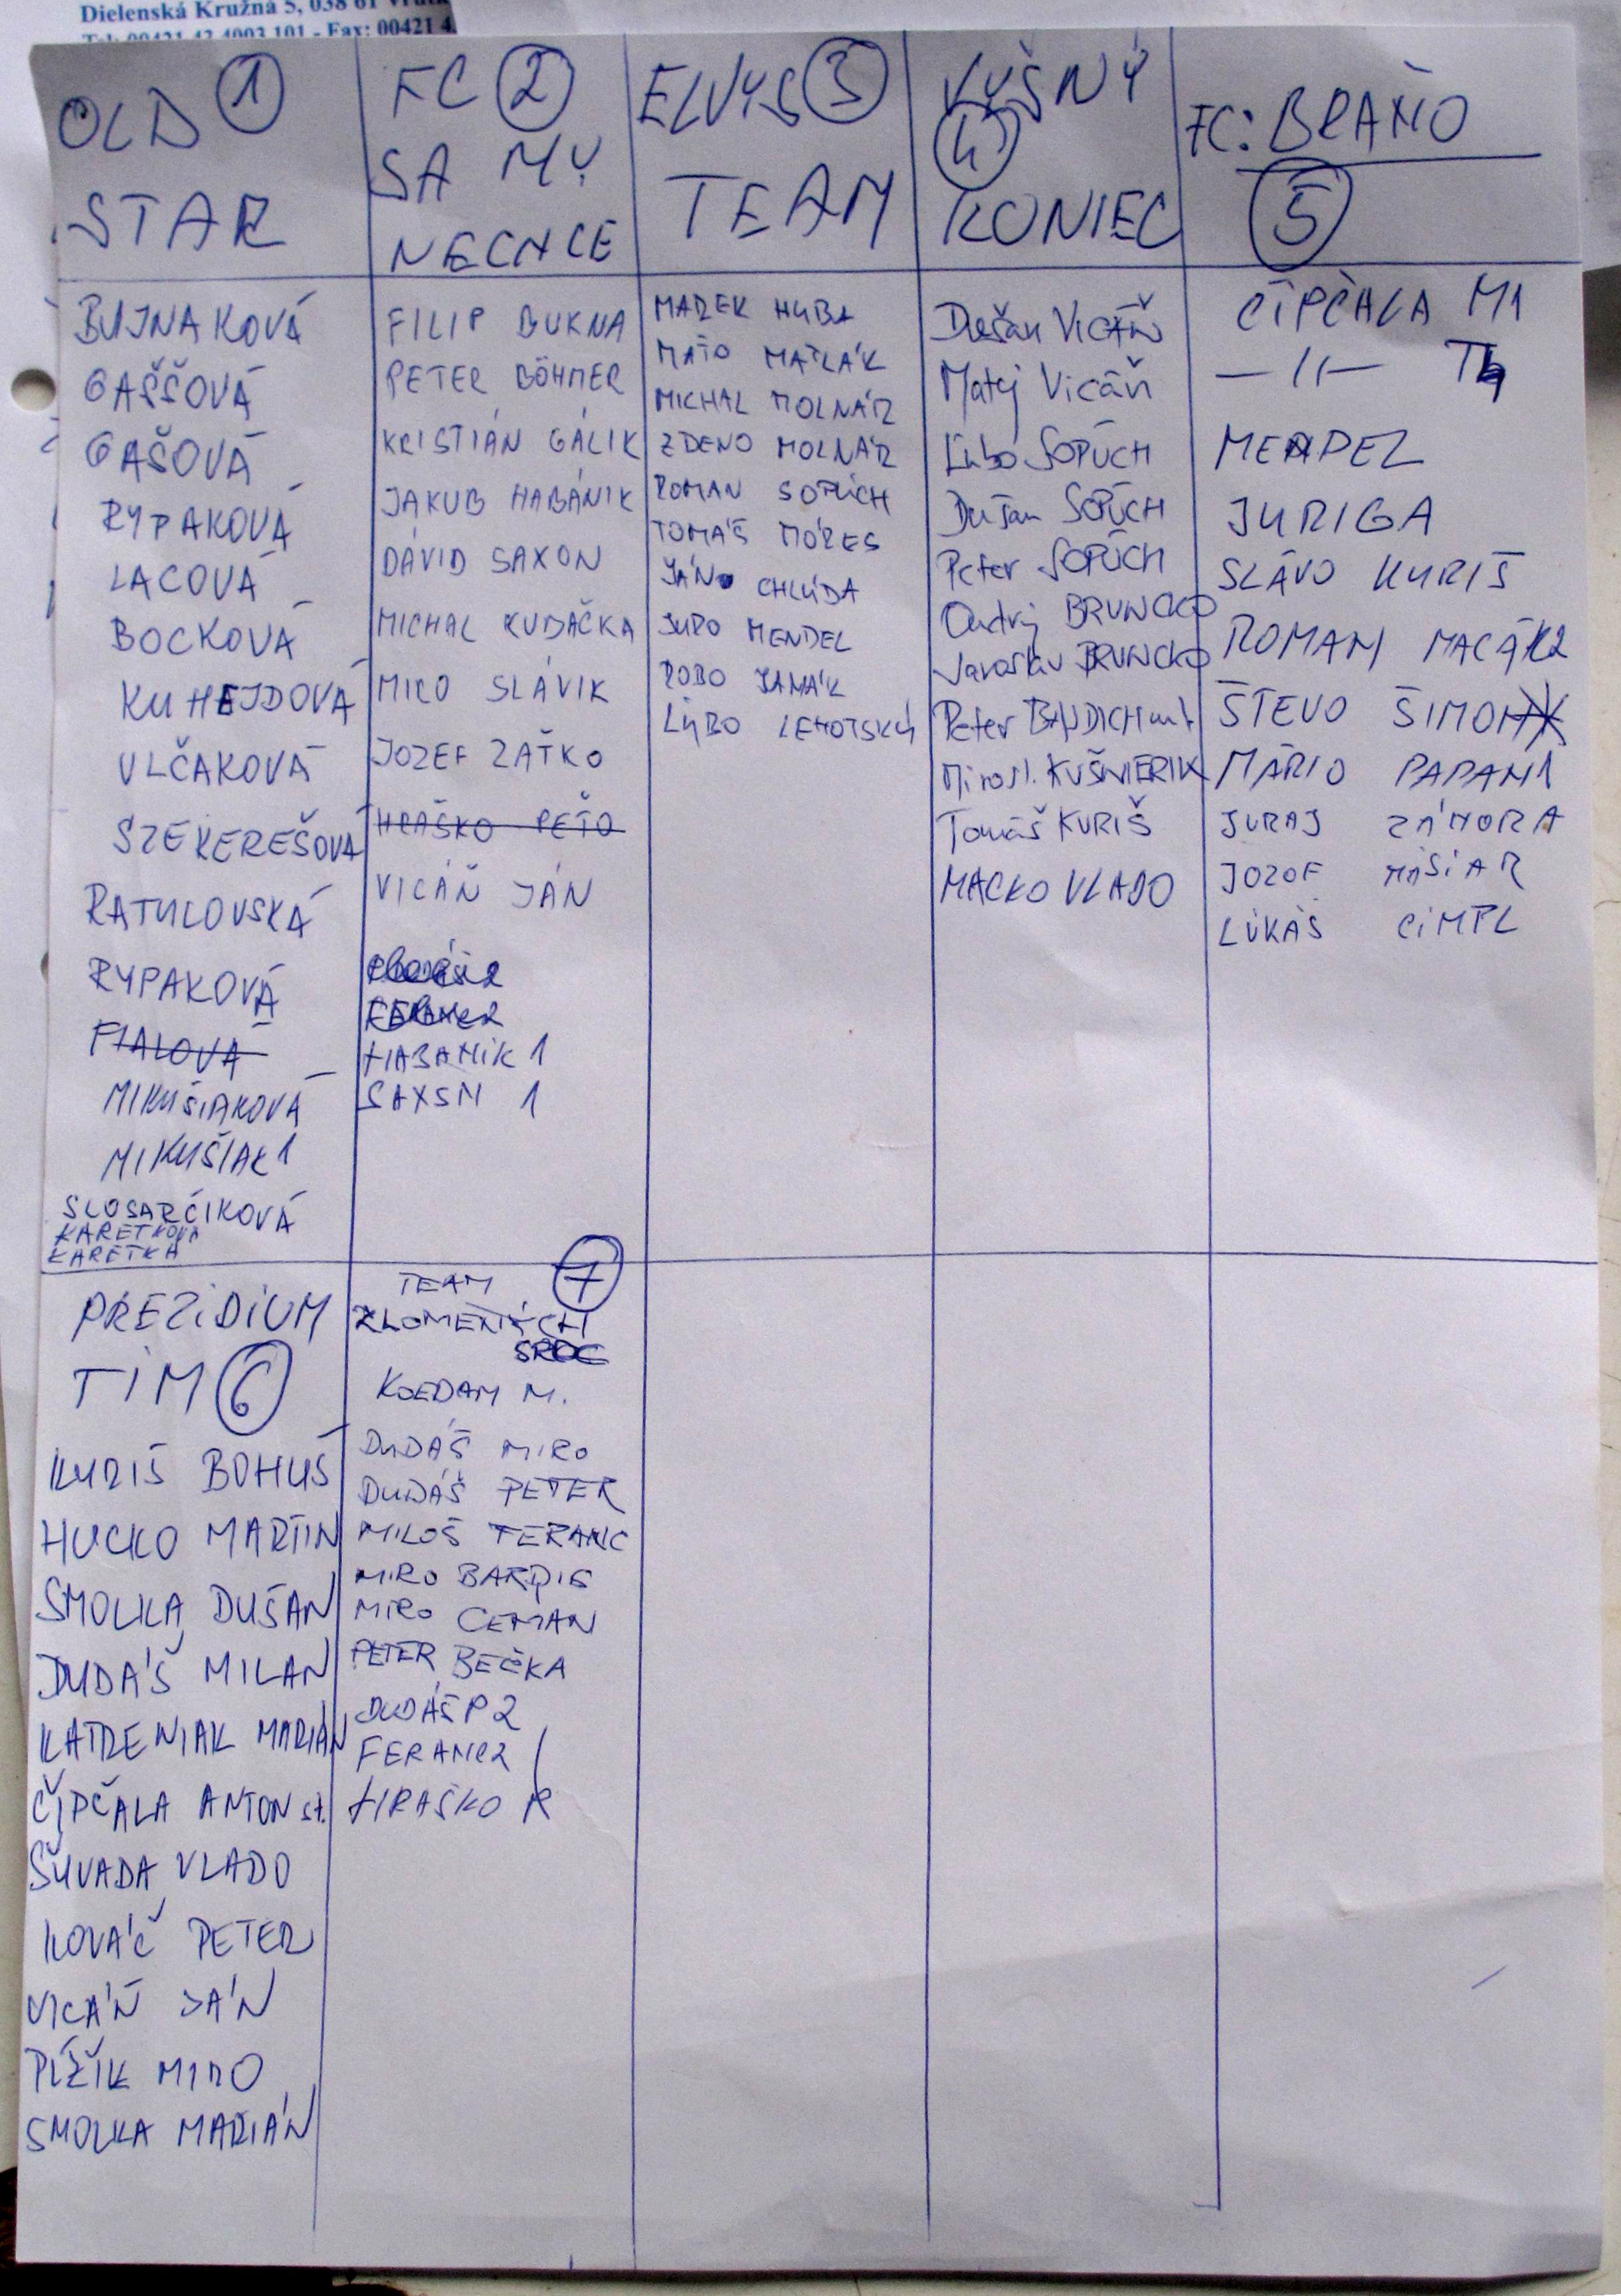 Dielenská Kružná 5, 038 61
Tel: 00421 43 4003 101 - Fax: 00421 4
OLD 1
STAR
BUJNAKOVÁ
GAŠŠOVÁ
GAŠOVÁ
RYPAKOVÁ
LACOVÁ
BOCKOVÁ
KUHEJDOVÁ
VLČAKOVÁ
SZEKEREŠOVÁ
RATULOVSKÁ
RYPAKOVÁ
FIALOVÁ
MIKUŠIAKOVÁ
MIKUŠIAK 1
SLOSARČIKOVÁ
KARETKOVÁ
KARETKA
FC 2
SA MY
NECHCE
FILIP BUKNA
PETER BÖHMER
KRISTIÁN GÁLIK
JAKUB HABÁNIK
DÁVID SAXON
MICHAL KUBAČKA
MIRO SLÁVIK
JOZEF ZAŤKO
HRAŠKO PEŤO
VICÁŇ JÁN
HABANIK 1
SAXSN 1
ELVYS 3
TEAM
MAREK HUBA
MAŤO MATLÁK
MICHAL MOLNÁR
ZDENO MOLNÁR
ROMAN SOPÚCH
TOMÁŠ MÓRES
JÁNO CHLÚDA
JURO MENDEL
ROBO JAMÁK
ĽUBO LEHOTSKÝ
VYŠNÝ
4
KONIEC
Dušan VICÁŇ
Matej Vicáň
Ľubo SOPÚCH
Dušan SOPÚCH
Peter SOPÚCH
Ondrej BRUNCKO
Jaroslav BRUNCKO
Peter
Mirosl. KUŠNIERIK
Tomáš KURIŠ
MACKO VLADO
FC: BRAŇO
5
ČÍPČALA M1
—//— T
MENDEL
JURIGA
SLÁVO KURIŠ
ROMAN MACÁK2
ŠTEVO ŠIMON
MÁRIO PAPAN1
JURAJ ZÁMORA
JOZOF MÁŠIAR
LUKÁŠ CIMPL
PREZIDIUM
TIM 6
KURIŠ BOHUŠ
HUCKO MARTIN
SMOLKA DUŠAN
DUDÁŠ MILAN
KATRENIAK MARIÁN
ČIPČALA ANTON st.
ŠUVADA VLADO
KOVÁČ PETER
VICÁŇ JÁN
PLŽIK MIRO
SMOLKA MARIÁN
TEAM 7
ZLOMENÝCH
SRDC
KOEDAM M.
DUDÁŠ MIRO
DUDÁŠ PETER
MILOŠ FERANC
MIRO
MIRO CEMAN
PETER BEČKA
DUDÁŠ P 2
FERANC2
HRAŠKO R